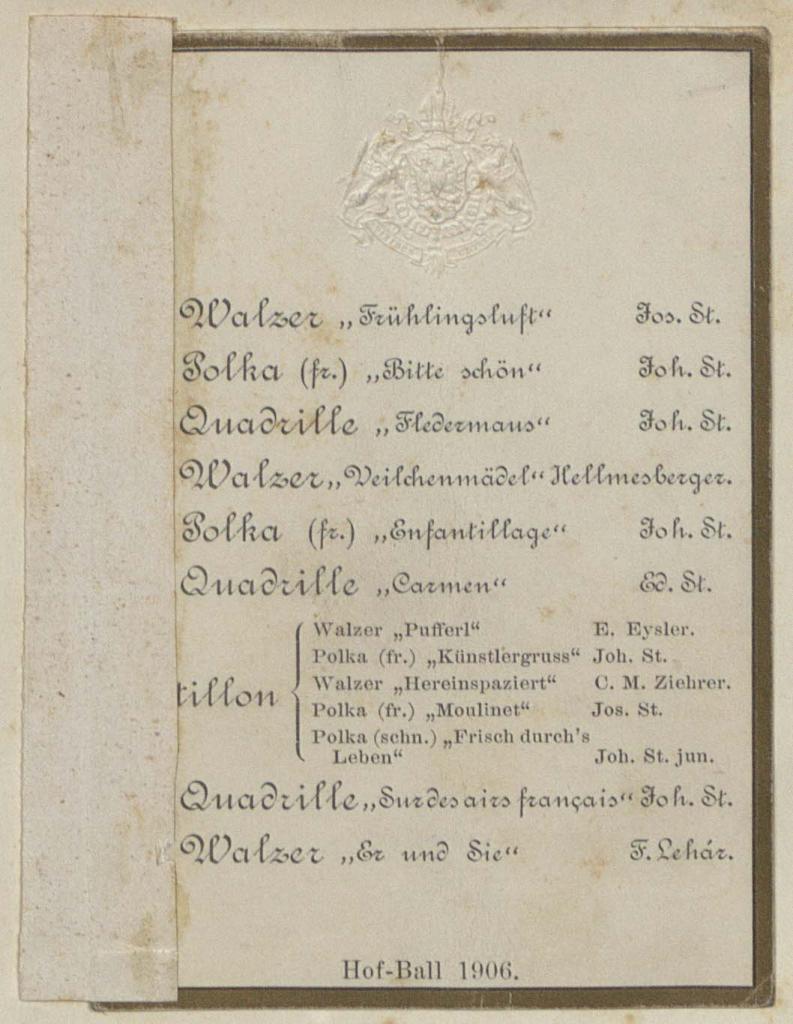 Walzer „Frühlingsluft“ Jos. St.
Polka (fr.) „Bitte schön“ Joh. St.
Quadrille „Fledermaus“ Joh. St.
Walzer „Veilchenmädel“ Hellmesberger.
Polka (fr.) „Enfantillage“ Joh. St.
Quadrille „Carmen“ Ed. St.
tillon
Walzer „Pufferl“ E. Eysler.
Polka (fr.) „Künstlergruss“ Joh. St.
Walzer „Hereinspaziert“ C. M. Ziehrer.
Polka (fr.) „Moulinet“ Jos. St.
Polka (schn.) „Frisch durch's
Leben“ Joh. St. jun.
Quadrille „Sur des airs français“ Joh. St.
Walzer „Er und Sie“ F. Lehár.
Hof-Ball 1906.